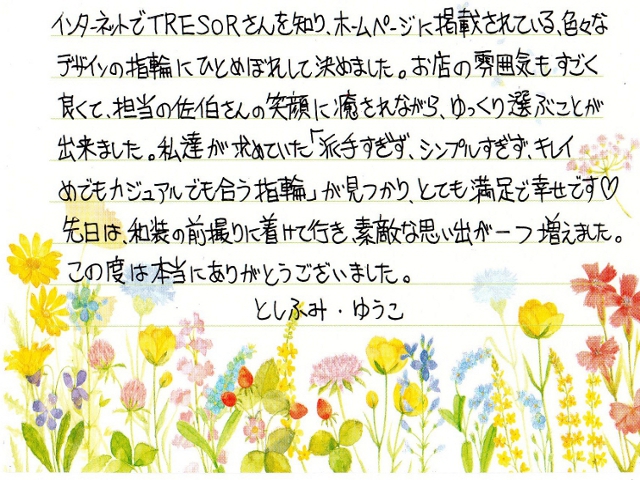 インターネットでTRESORさんを知り、ホームページに掲載されている、色々な
デザインの指輪にひとめぼれして決めました。お店の雰囲気もすごく
良くて、担当の佐伯さんの笑顔に癒されながら、ゆっくり選ぶことが
出来ました。私達が求めていた「派手すぎず、シンプルすぎず、キレイ
めでもカジュアルでも合う指輪」が見つかり、とても満足で幸せです♡
先日は、和装の前撮りに着けて行き、素敵な思い出が一つ増えました。
この度は本当にありがとうございました。
としふみ・ゆうこ